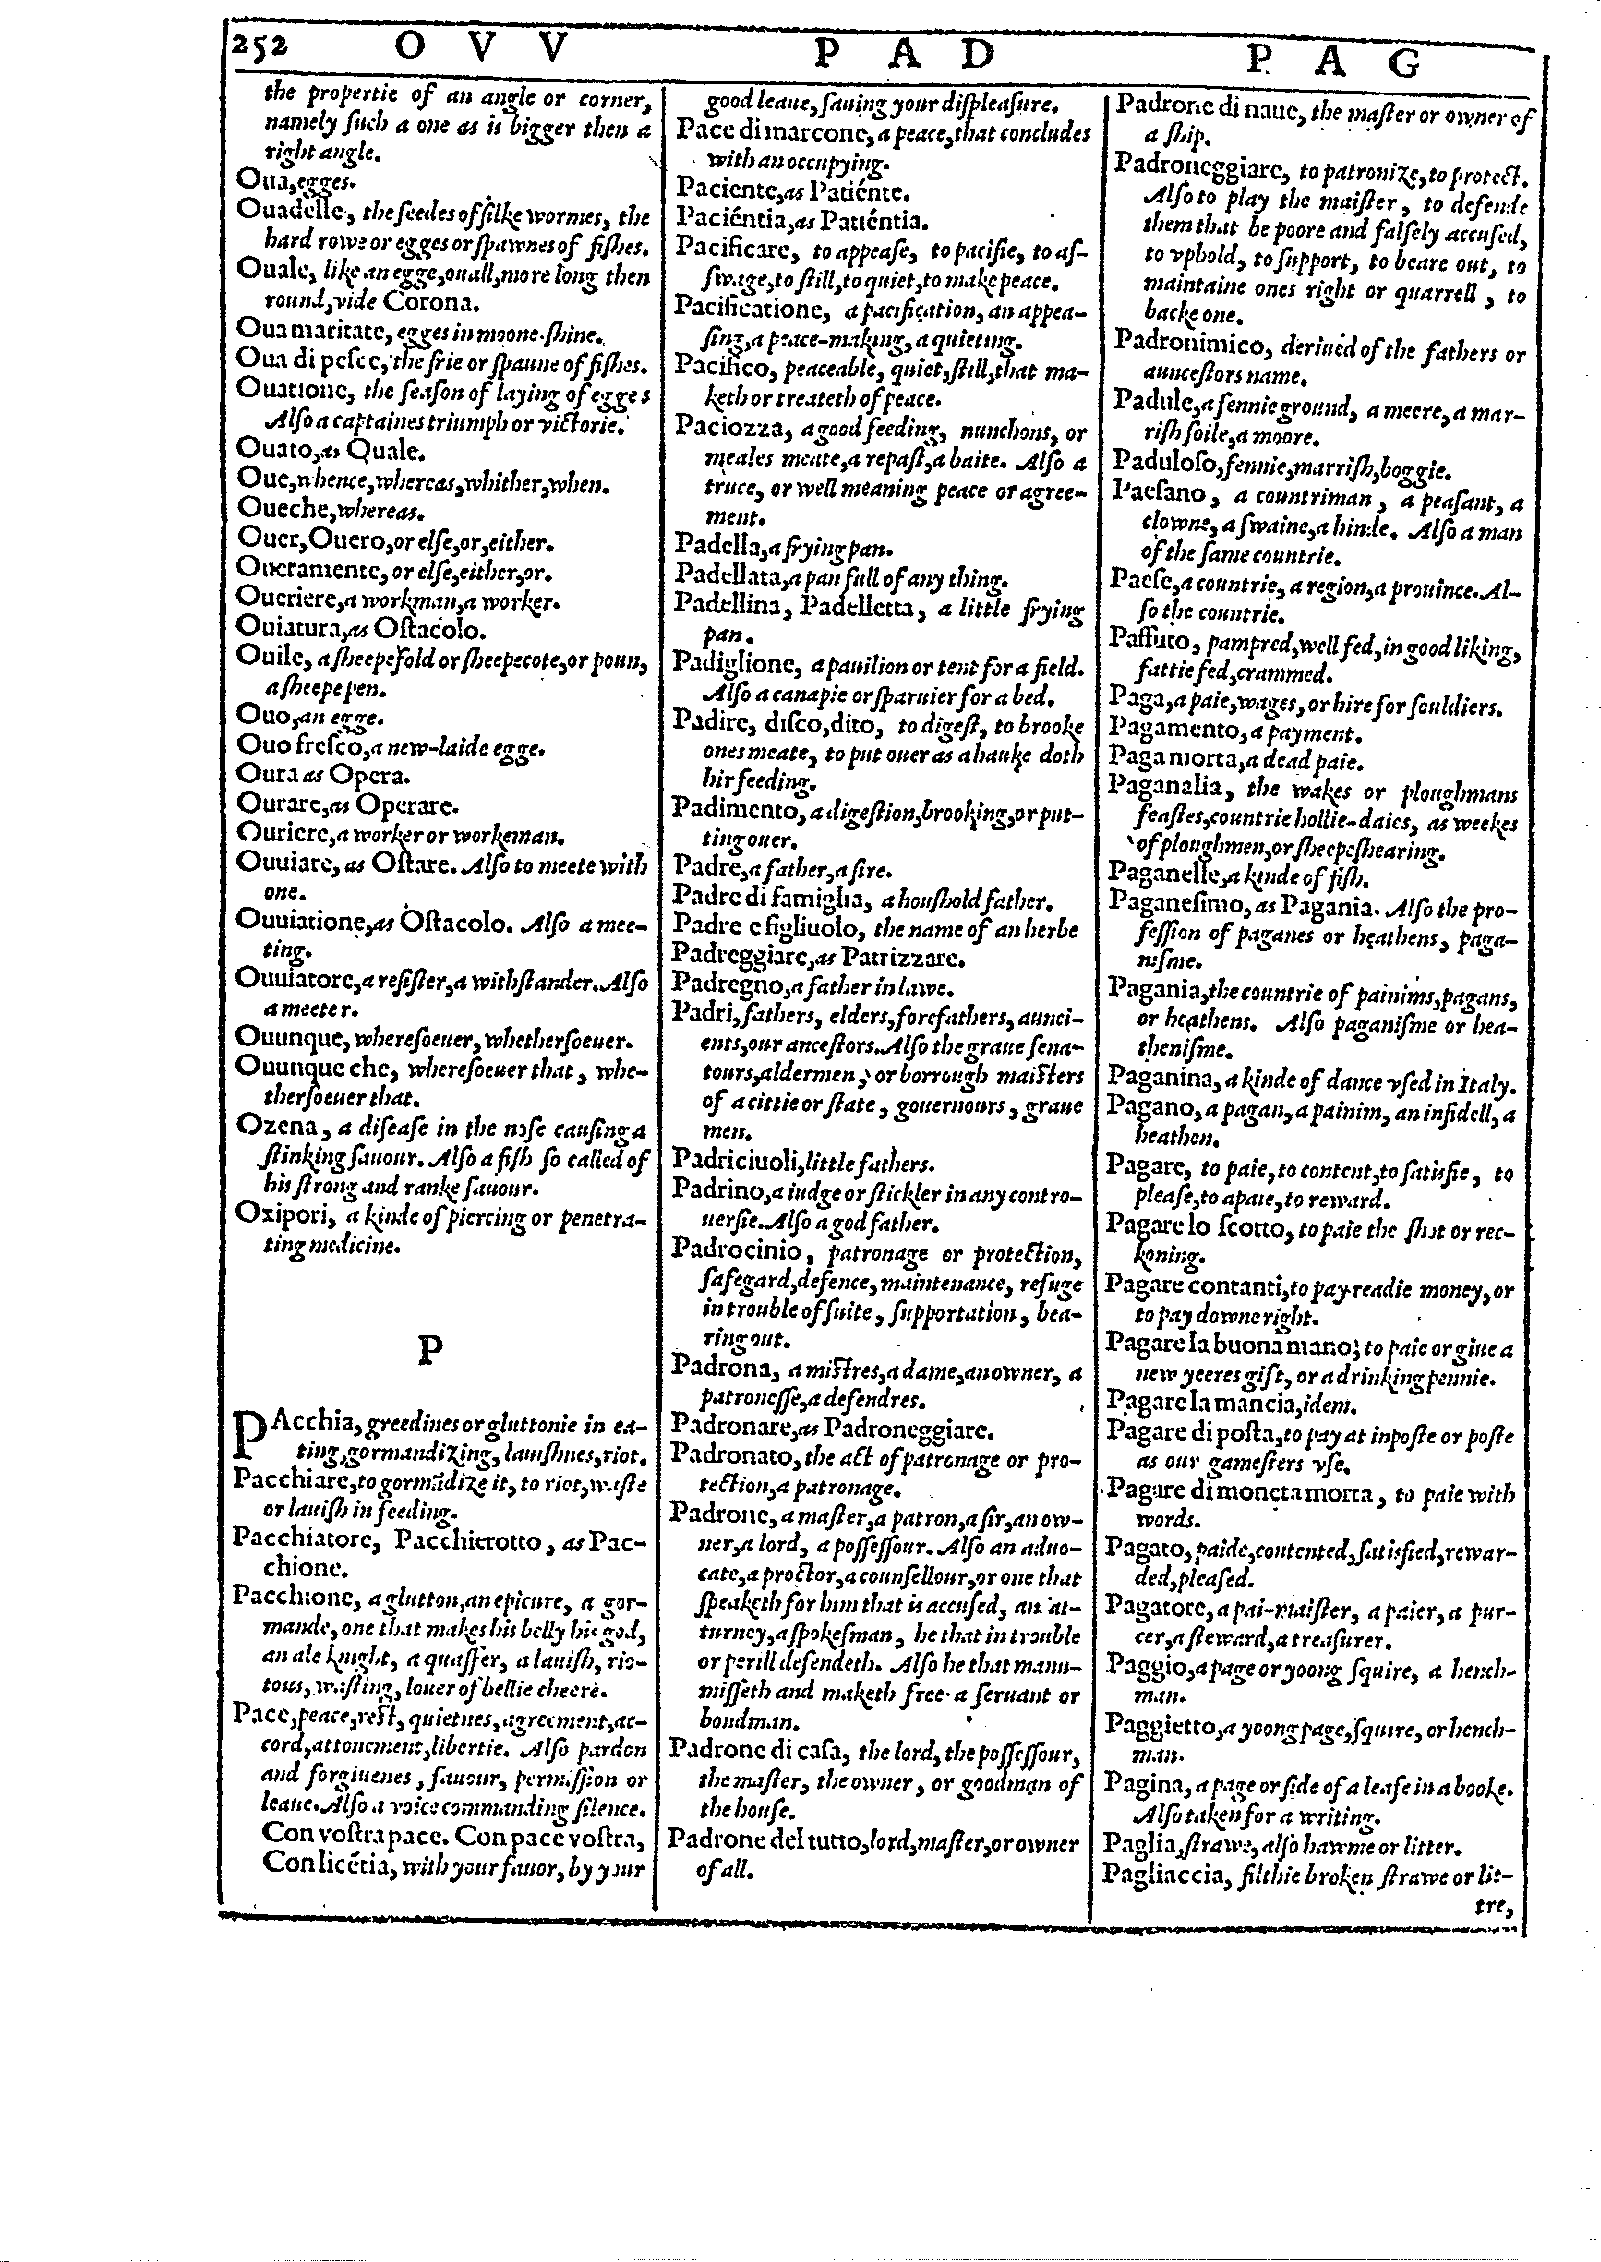 252 O V V P A D P A G
the propertie of an angle or corner,
namely ſuch a one as is bigger then a
right angle.
Oua, egges.
Ouadelle, the ſeedes of ſilke wormes, the
hard rowe or egges or ſpawnes of fiſhes.
Ouale, like an egge, ouall, more long then
round, vide Corona.
Oua maritate, egges in moone-ſhine.
Oua di peſce, the frie or ſpaune of fiſhes.
Ouatione, the ſeaſon of laying of egges
Alſo a captaines triumph or victorie.
Ouato, as Ouale.
Oue, whence, whereas, whither, when.
Oueche, whereas.
Ouer, Ouero, or elſe, or, either.
Oueramente, or elſe, either, or.
Oueriere, a workman, a worker.
Ouiatura, as Oſtacolo.
Ouile, a ſheepefold or ſheepecote, or poun,
a ſheepe pen.
Ouo, an egge.
Ouo freſco, a new-laide egge.
Oura as Opera.
Ourare, as Operare.
Ouriere, a worker or workeman.
Ouuiare, as Oſtare. Alſo to meete with
one.
Ouuiatione, as Oſtacolo. Alſo a mee-
ting.
Ouuiatore, a reſiſter, a withſtander. Alſo
a meeter.
Ouunque, whereſoeuer, whetherſoeuer.
Ouunque che, whereſoeuer that, whe-
therſoeuer that.
Ozena, a diſeaſe in the noſe cauſing a
ſtinking ſauour. Alſo a fiſh ſo called of
his ſtrong and ranke ſauour.
Oxipori, a kinde of piercing or penetra-
ting medicine.
P
PAcchia, greedines or gluttonie in ea-
ting, gormandizing, lauiſhnes, riot.
Pacchiare, to gormãdize it, to riot, waſte
or lauiſh in feeding.
Pacchiatore, Pacchierotto, as Pac-
chione.
Pacchione, a glutton, an epicure, a gor-
mande, one that makes his belly his god,
an ale knight, a quaffer, a lauiſh, rio-
tous, waſting, louer of bellie cheere.
Pace, peace, reſt, quietnes, agreement, ac-
cord, attonement, libertie. Alſo pardon
and forgiuenes, fauour, permiſſion or
leaue. Alſo a voice commanding ſilence.
Con voſtra pace. Con pace voſtra,
Con licẽtia, with your fauor, by your
good leaue, ſauing your diſpleaſure.
Pace di marcone, a peace, that concludes
with an occupying.
Paciente, as Patiénte.
Paciéntia, as Patiéntia.
Pacificare, to appeaſe, to pacifie, to aſ-
ſwage, to ſtill, to quiet, to make peace.
Pacificatione, a pacification, an appea-
ſing, a peace-making, a quieting.
Pacifico, peaceable, quiet, ſtill, that ma-
keth or treateth of peace.
Paciozza, a good feeding, nunchons, or
meales meate, a repaſt, a baite. Alſo a
truce, or well meaning peace or agree-
ment.
Padella, a frying pan.
Padellata, a pan full of any thing.
Padellina, Padelletta, a little frying
pan.
Padiglione, a pauilion or tent for a field.
Alſo a canapie or ſparuier for a bed.
Padire, diſco, dito, to digeſt, to brooke
ones meate, to put ouer as a hauke doth
hir feeding.
Padimento, a digeſtion, brooking, or put-
ting ouer.
Padre, a father, a ſire.
Padre di famiglia, a houſhold father.
Padre e figliuolo, the name of an herbe
Padreggiare, as Patrizzare.
Padregno, a father in lawe.
Padri, fathers, elders, forefathers, aunci-
ents, our anceſtors. Alſo the graue ſena-
tours, aldermen, or borrough maiſters
of a cittie or ſtate, gouernours, graue
men.
Padriciuoli, little fathers.
Padrino, a iudge or ſtickler in any contro-
uerſie. Alſo a godfather.
Padrocinio, patronage or protection,
ſafegard, defence, maintenance, refuge
in trouble of ſuite, ſupportation, bea-
ring out.
Padrona, a miſtres, a dame, an owner, a
patroneſſe, a defendres.
Padronare, as Padroneggiare.
Padronato, the act of patronage or pro-
tection, a patronage.
Padrone, a maſter, a patron, a ſir, an ow-
ner, a lord, a poſſeſſour. Alſo an aduo-
cate, a proctor, a counſellour, or one that
ſpeaketh for him that is accuſed, an at-
turney, a ſpokeſman, he that in trouble
or perill defendeth. Alſo he that manu-
miſſeth and maketh free a ſeruant or
bondman.
Padrone di caſa, the lord, the poſſeſſour,
the maſter, the owner, or goodman of
the houſe.
Padrone del tutto, lord, maſter, or owner
of all.
Padrone di naue, the maſter or owner of
a ſhip.
Padroneggiare, to patronize, to protect.
Alſo to play the maiſter, to defende
them that be poore and falſely accuſed,
to vphold, to ſupport, to beare out, to
maintaine ones right or quarrell, to
backe one.
Padronimico, deriued of the fathers or
aunceſtors name.
Padule, a fennie ground, a meere, a mar-
riſh ſoile, a moore.
Paduloſo, fennie, marriſh, boggie.
Paeſano, a countriman, a peaſant, a
clowne, a ſwaine, a hinde. Alſo a man
of the ſame countrie.
Paeſe, a countrie, a region, a prouince. Al-
ſo the countrie.
Paffuto, pampred, well fed, in good liking,
fattie fed, crammed.
Paga, a paie, wages, or hire for ſouldiers.
Pagamento, a payment.
Paga morta, a dead paie.
Paganalia, the wakes or ploughmans
feaſtes, countrie hollie-daies, as weekes
of ploughmen, or ſheepeſhearing.
Paganelle, a kinde of fiſh.
Paganeſimo, as Pagania. Alſo the pro-
feſſion of paganes or heathens, paga-
niſme.
Pagania, the countrie of painims, pagans,
or heathens. Alſo paganiſme or hea-
theniſme.
Paganina, a kinde of dance vſed in Italy.
Pagano, a pagan, a painim, an infidell, a
heathen.
Pagare, to paie, to content, to ſatisfie, to
pleaſe, to apaie, to reward.
Pagare lo ſcotto, to paie the ſhot or rec-
koning.
Pagare contanti, to pay readie money, or
to pay downe right.
Pagare la buona mano, to paie or giue a
new yeeres gift, or a drinking pennie.
Pagare la mancia, idem.
Pagare di poſta, to pay at inpoſte or poſte
as our gameſters vſe.
Pagare di moneta morta, to paie with
words.
Pagato, paide, contented, ſatisfied, rewar-
ded, pleaſed.
Pagatore, a pai-maiſter, a paier, a pur-
cer, a ſteward, a treaſurer.
Paggio, a page or yoong ſquire, a hench-
man.
Paggietto, a yoong page, ſquire, or hench-
man.
Pagina, a page or ſide of a leafe in a booke.
Alſo taken for a writing.
Paglia, ſtrawe, alſo hawme or litter.
Pagliaccia, filthie broken ſtrawe or lit-
tre,